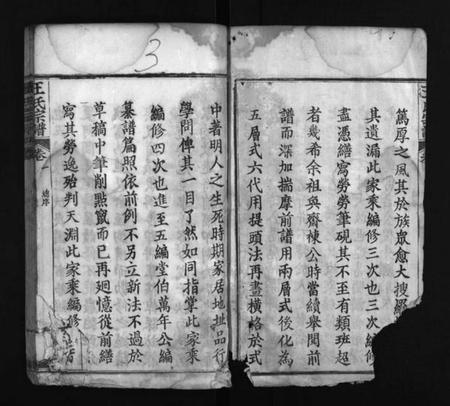 篤厚之風其於族眾愈大搜羅
其遺漏此家乘編修三次也三次編修
盡憑繕寫勞勞筆硯其不至有類班超
者幾希余祖與齋棟公時當續舉閱前
譜而深加揣摩前譜用兩層式後化為
五層式六代用提頭法再畫橫格於式
中著明人之生死時期家居地址品行
學問俾其一目了然如同指掌此家乘
編修四次也進至五編堂伯萬年公編
纂譜篇照依前例不另立新法不過於
草稿中筆削點竄而已再廻憶從前繕
寫其勞逸殆判天淵此家乘編修
王氏宗譜
卷一
3